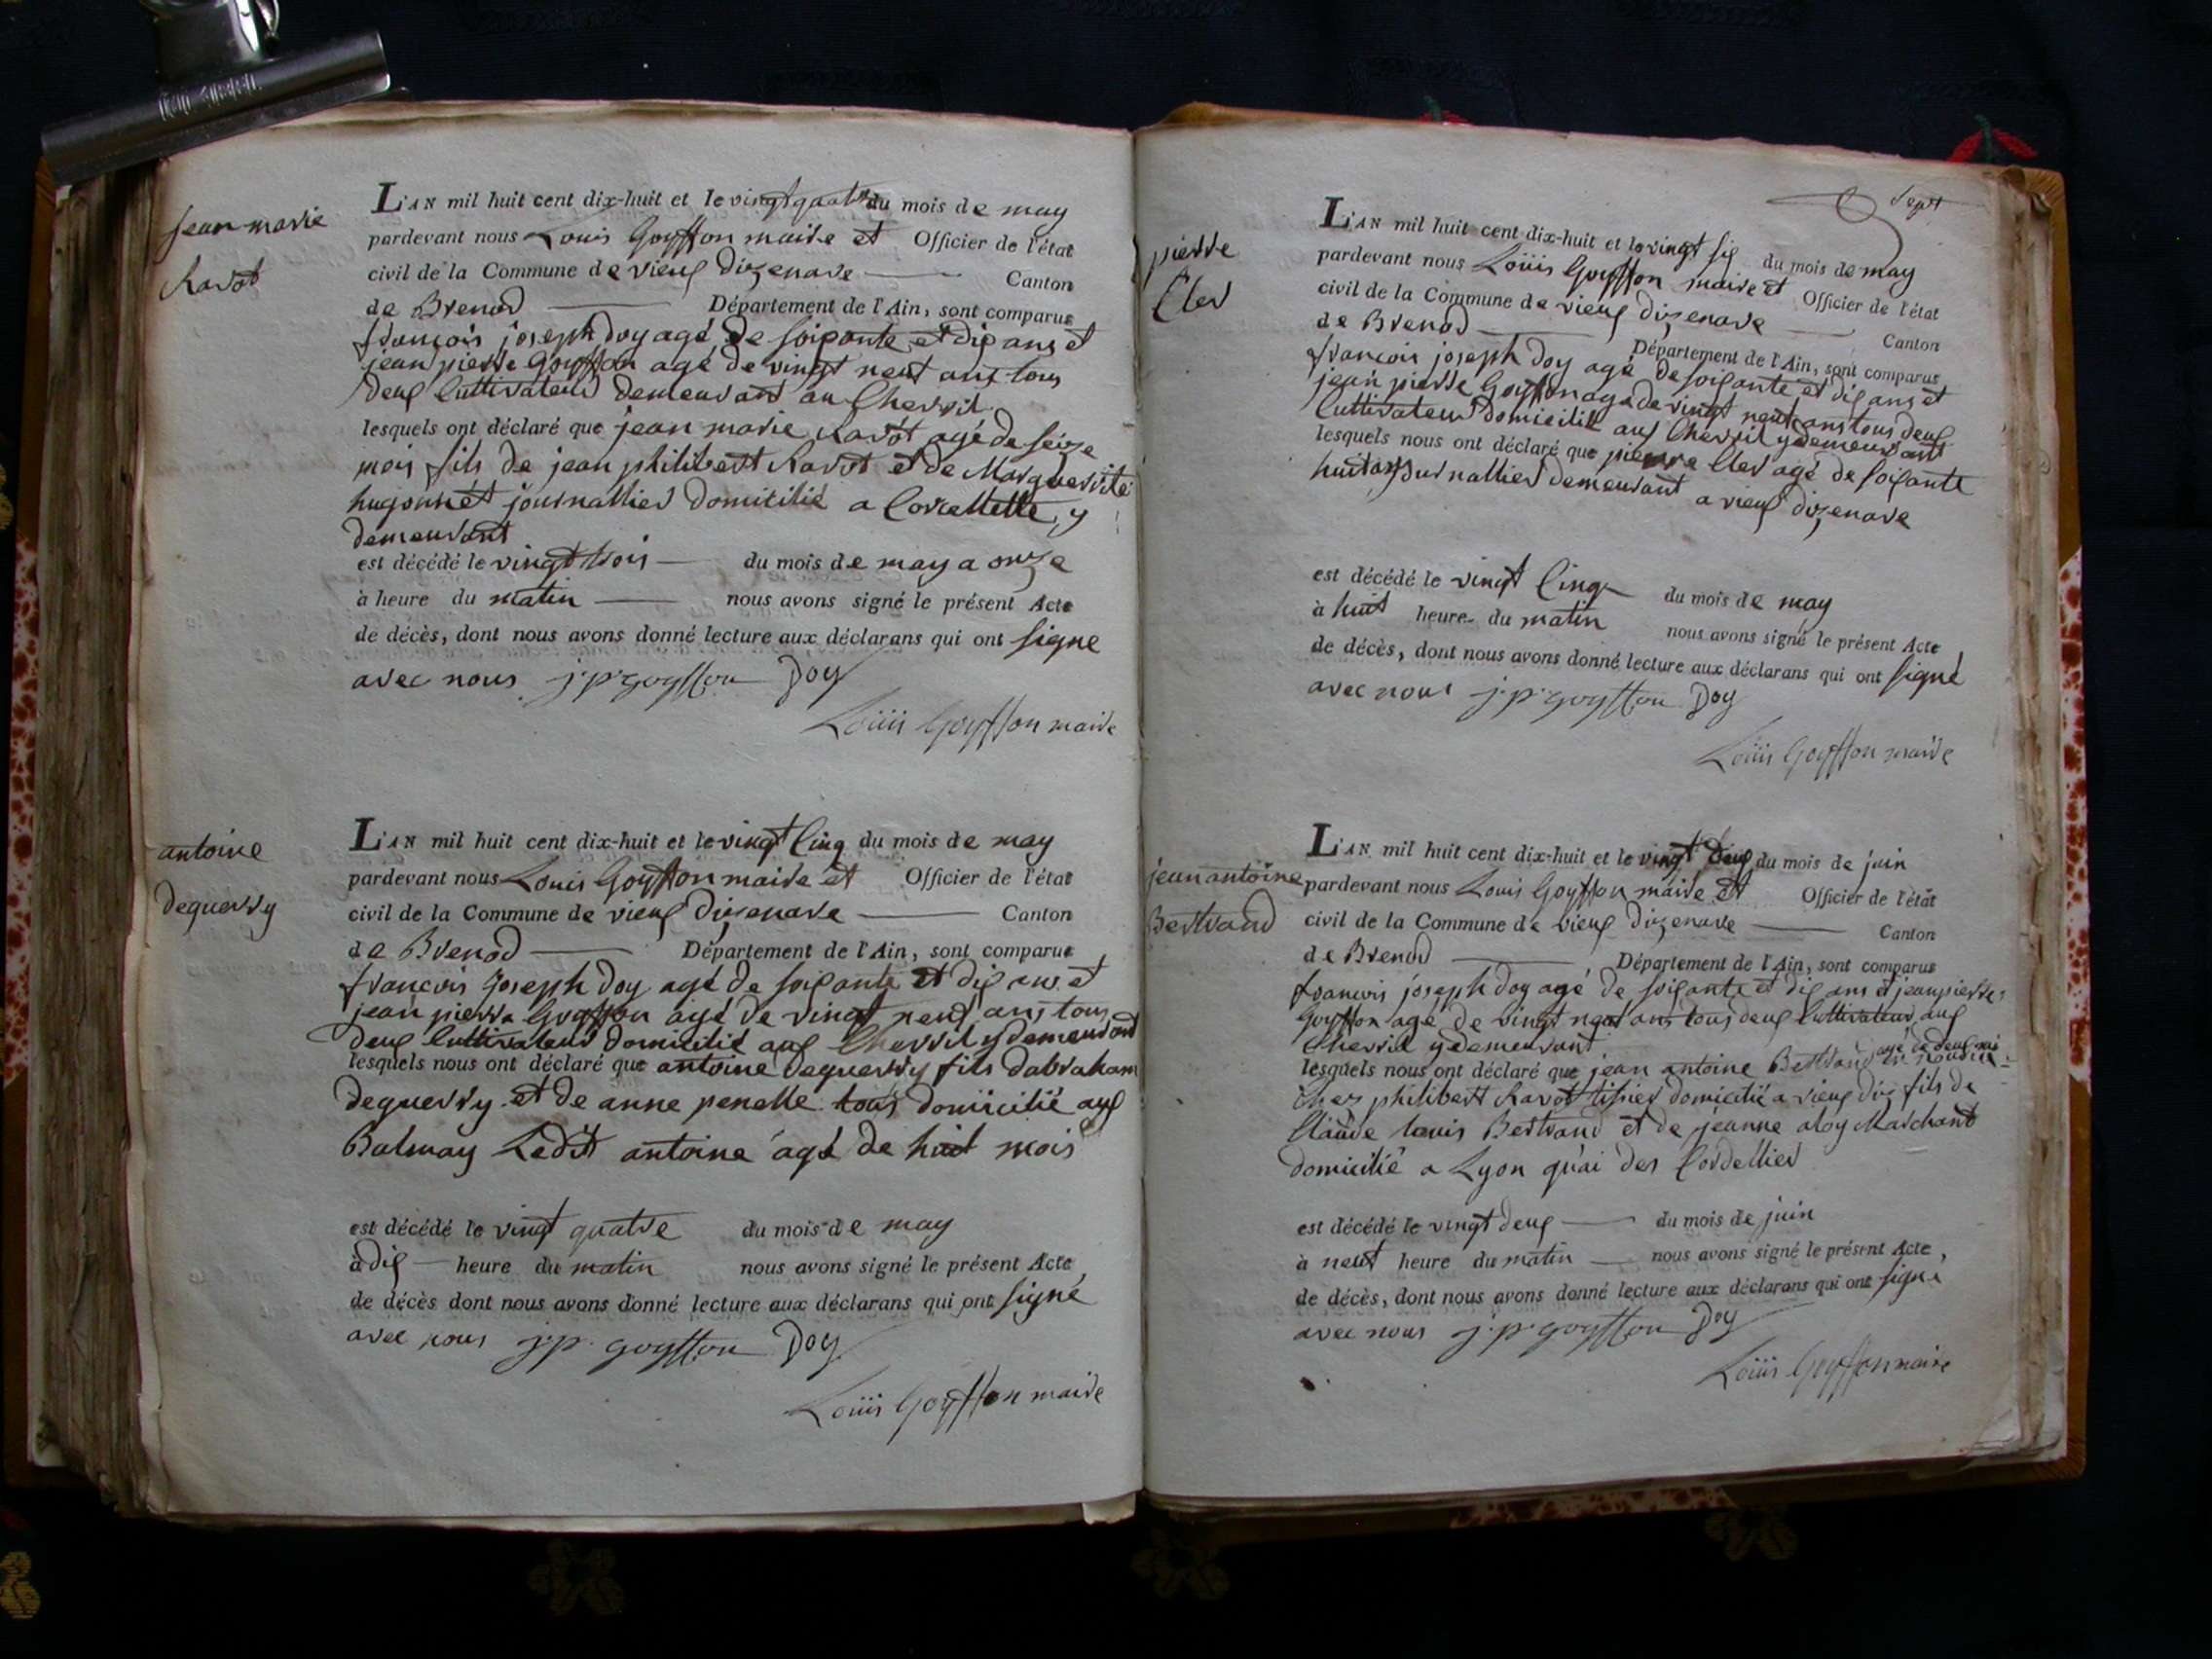 jean marie
Ravot
L'AN mil huit cent dix-huit et le vingt quatre du mois de may
pardevant nous Louis Goyffon maire et Officier de l'état
civil de la Commune de vieux dizenave Canton
de Brenod Département de l'Ain, sont comparus
françois joseph Doy agé de soixante et dix ans et
jean pierre Goyffon agé de vingt neuf ans tous
deux Cultivateurs demeurant au Chevril
lesquels ont déclaré que jean marie Ravot agé de séize
mois fils de jean philibert Ravot et de Marguerite
hugonnet journallier domicilié a Corcellette y
demeurant
est décédé le vingt trois du mois de may a onze
à heure du matin nous avons signé le présent Acte
de décès, dont nous avons donné lecture aux déclarans qui ont signe
avec nous j.p. goyffon Doy
Loüis Goyffon maire
antoine
deguerry
L'AN mil huit cent dix-huit et le vingt Cinq du mois de may
pardevant nous Louis Goyffon maire et Officier de l'état
civil de la Commune de vieux dizenave Canton
de Brenod Département de l'Ain, sont comparus
françois joseph Doy agé de soixante et dix ans et
jean pierre Goyffon agé de vingt neuf ans tous
deux Cultivateurs domicilié aux Chevril y demeurant
lesquels nous ont déclaré que antoine deguerry fils dabraham
deguerry et de anne penelle tous domicilié aux
Balmay Ledit antoine agé de huit mois
est décédé le vingt quatre du mois de may
à dix heure du matin nous avons signé le présent Acte
de décès dont nous avons donné lecture aux déclarans qui ont signé
avec nous j.p. goyffon Doy
Loüis Goyffon maire
Sept
pierre
Cler
L'AN mil huit cent dix-huit et le vingt six du mois de may
pardevant nous Loüis Goyffon maire et Officier de l'état
civil de la Commune de vieux dizenave Canton
de Brenod Département de l'Ain, sont comparus
françois joseph Doy agé de soixante et dix ans et
jean pierre Goyffon agé de vingt neuf ans tous deux
Cultivateurs domicilié aux Chevril y demeurant
lesquels nous ont déclaré que pierre Cler agé de soixante
huit ans journallier demeurant a vieux dizenave
est décédé le vingt Cinq du mois de may
à huit heure du matin nous avons signé le présent Acte
de décès, dont nous avons donné lecture aux déclarans qui ont signé
avec nous j.p. goyffon Doy
Loüis Goyffon maire
jean antoine
Bertrand
L'AN mil huit cent dix-huit et le vingt deux du mois de juin
pardevant nous Louis Goyffon maire et Officier de l'état
civil de la Commune de vieux dizenave Canton
de Brenod Département de l'Ain, sont comparus
françois joseph doy agé de soixante et dix ans et jean pierre
Goyffon agé de vingt neuf ans tous deux Cultivateurs aux
Chevril y demeurant
lesquels nous ont déclaré que jean antoine Bertrand agé de deux mois en nourice
Chez philibert Ravot tissier domicilié a vieux diz fils de
Claude louis Bertrand et de jeanne aloy Marchand
domicilié a Lyon quai des Cordellier
est décédé le vingt deux du mois de juin
à neuf heure du matin nous avons signé le présent Acte,
de décès, dont nous avons donné lecture aux déclarans qui ont signé
avec nous j.p. goyffon Doy
Loüis Goyffon maire